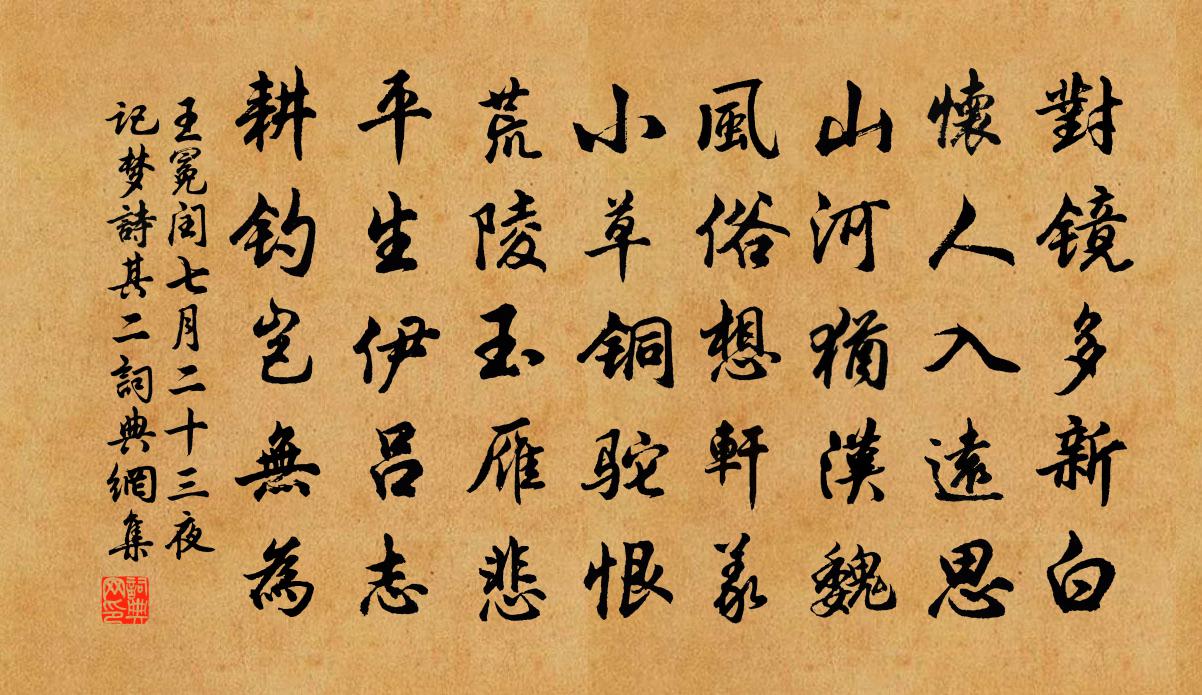 對镜多新白
懷人入遠思
山河猶漢魏
風俗想軒羲
小草铜驼恨
荒陵玉雁悲
平生伊吕志
耕钓岂無為
王冕闰七月二十三夜
记梦詩其二詞典網集
詞典网印